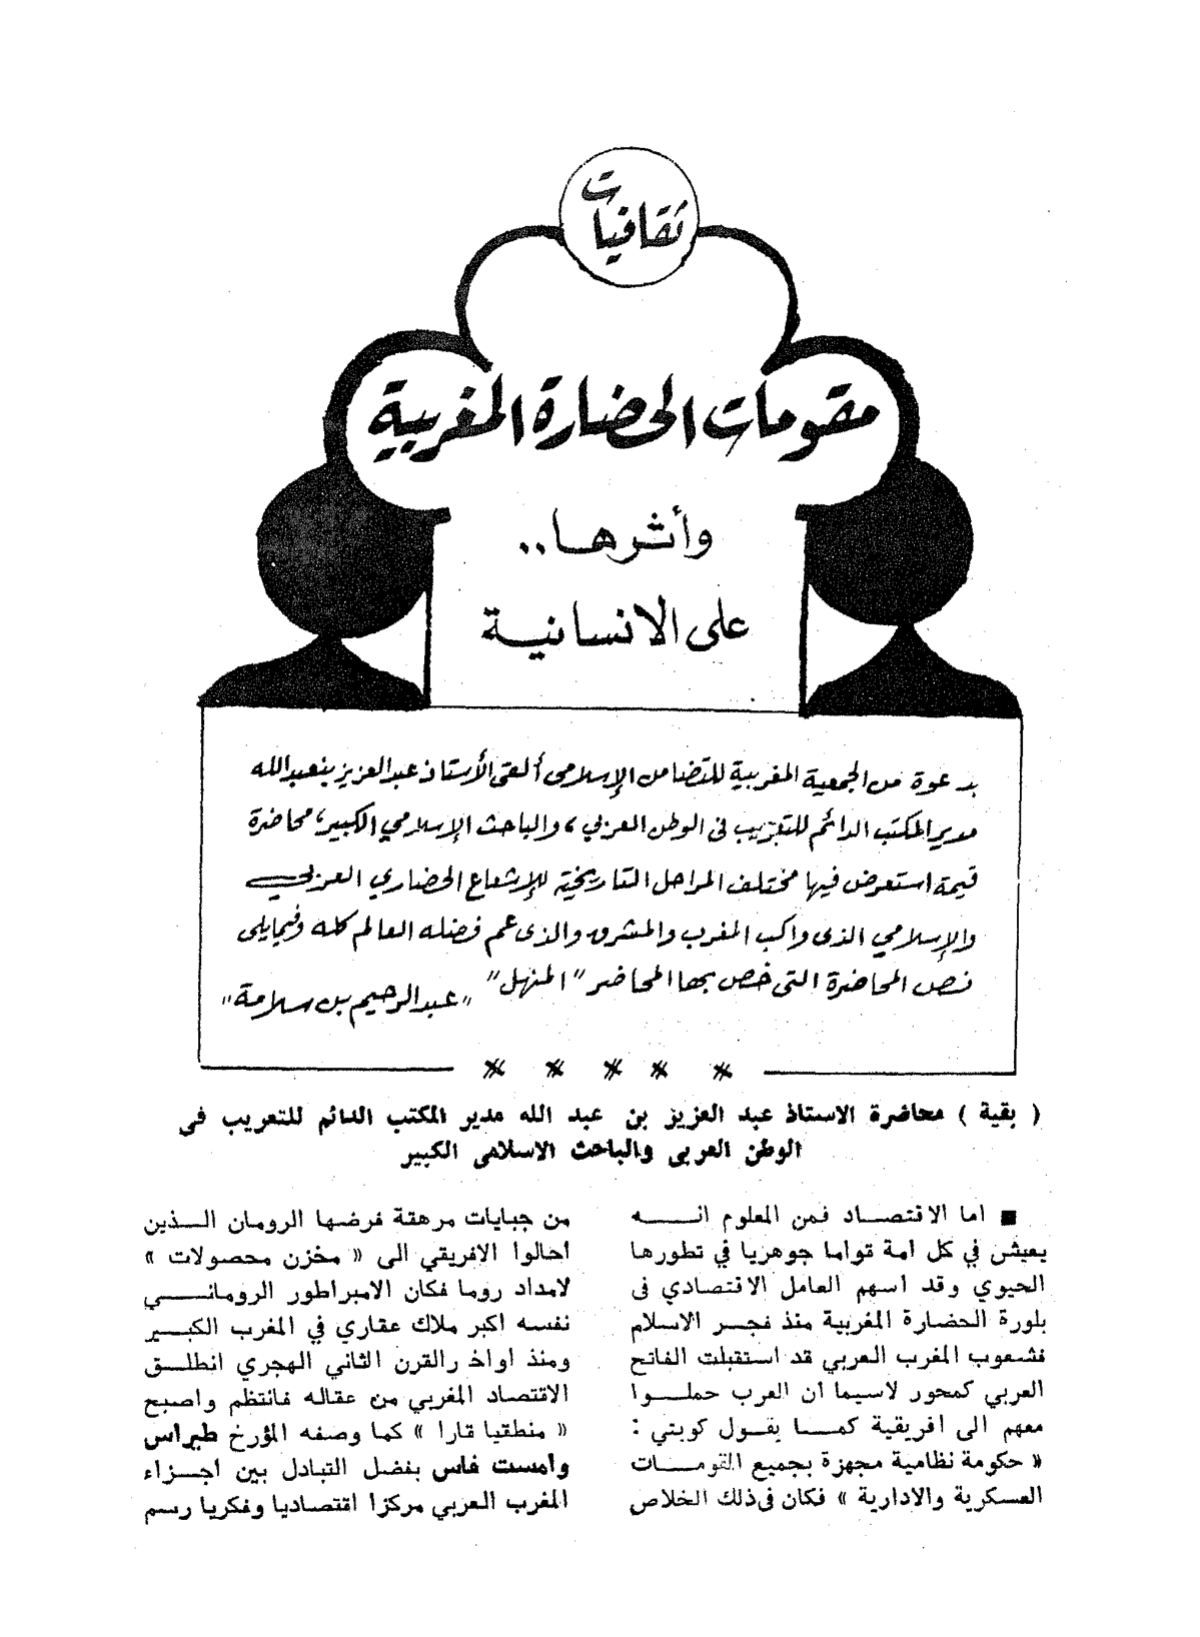 ثقافيات
مقومات الحضارة المغربية
وأثرها..
على الانسانية
بدعوة من الجمعية المغربية للتضامن الإسلامى ألقى الأستاذ عبد العزيز بنعبد الله
مدير المكتب الدائم للتعريب فى الوطن العربي، والباحث الإسلامي الكبير، محاضرة
قيمة استعرض فيها مختلف المراحل التاريخية للإشعاع الحضاري العربي
والإسلامي الذى واكب المغرب والمشرق والذى عم فضله العالم كله وفيما يلى
نص المحاضرة التى خص بها المحاضر "المنهل" "عبد الرحيم بن سلامة"
( بقية ) محاضرة الاستاذ عبد العزيز بن عبد الله مدير المكتب الدائم للتعريب فى
الوطن العربى والباحث الاسلامى الكبير
■ اما الاقتصاد فمن المعلوم انه
يعيش في كل امة قواما جوهريا في تطورها
الحيوي وقد اسهم العامل الاقتصادي فى
بلورة الحضارة المغربية منذ فجر الاسلام
فشعوب المغرب العربي قد استقبلت الفاتح
العربي كمحور لاسيما ان العرب حملوا
معهم الى افريقية كما يقول كوبتي :
« حكومة نظامية مجهزة بجميع القومات
العسكرية والادارية » فكان فى ذلك الخلاص
من جبايات مرهقة فرضها الرومان الذين
احالوا الافريقي الى « مخزن محصولات »
لامداد روما فكان الامبراطور الروماني
نفسه اكبر ملاك عقاري في المغرب الكبير
ومنذ اواخ رالقرن الثاني الهجري انطلق
الاقتصاد المغربي من عقاله فانتظم واصبح
« منطقيا قارا » كما وصفه المؤرخ طيراس
وامست فاس بفضل التبادل بين اجزاء
المغرب العربي مركزا اقتصاديا وفكريا رسم